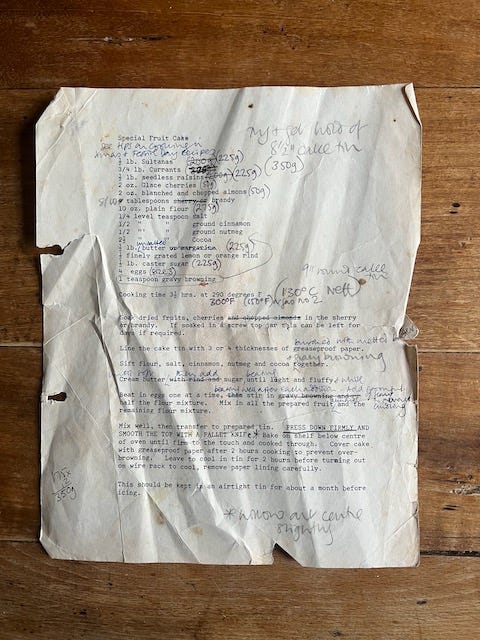 Special Fruit Cake
See tips on covering in
Xmas + Festive Day Recipes
Try + get hold of
8½" cake tin
½ lb. Sultanas 200g (225g)
3/4 lb. Currants (350g)
½ lb. seedless raisins (225g)
2 oz. Glace cherries (50g)
2 oz. blanched and chopped almons (50g)
tablespoons sherry or brandy
10 oz. plain flour (275g)
1/4 level teaspoon salt
1/2 " " ground cinnamon
1/2 " " ground nutmeg
2½ " " Cocoa
unsalted
½ lb. butter or margarine (225g)
finely grated lemon or orange rind
½ lb. caster sugar (225g)
4 eggs (size 3)
1 teaspoon gravy browning
9" round cake
tin
Cooking time 3½ hrs. at 290 degrees F
300°F (150°F) gas no 2
(130°C Neff)
Soak dried fruits, cherries and chopped almonds in the sherry
or brandy. If soaked in a screw top jar this can be left for
days if required.
Line the cake tin with 3 or 4 thicknesses of greaseproof paper.
brushed with melted
+ gravy browning
Sift flour, salt, cinnamon, nutmeg and cocoa together.
then add
Cream butter with rind and sugar until light and fluffy
beating well after each addition + add ground
Beat in eggs one at a time, then stir in gravy browning and
half the flour mixture. Mix in all the prepared fruit and the
remaining flour mixture.
Mix well, then transfer to prepared tin. PRESS DOWN FIRMLY AND
SMOOTH THE TOP WITH A PALLET KNIFE * Bake on shelf below centre
of oven until firm to the touch and cooked through. Cover cake
with greaseproof paper after 2 hours cooking to prevent over-
browning. Leave to cool in tin for 2 hours before turning out
on wire rack to cool, remove paper lining carefully.
This should be kept in an airtight tin for about a month before
icing.
175
2
350g
* hollow out centre
slightly